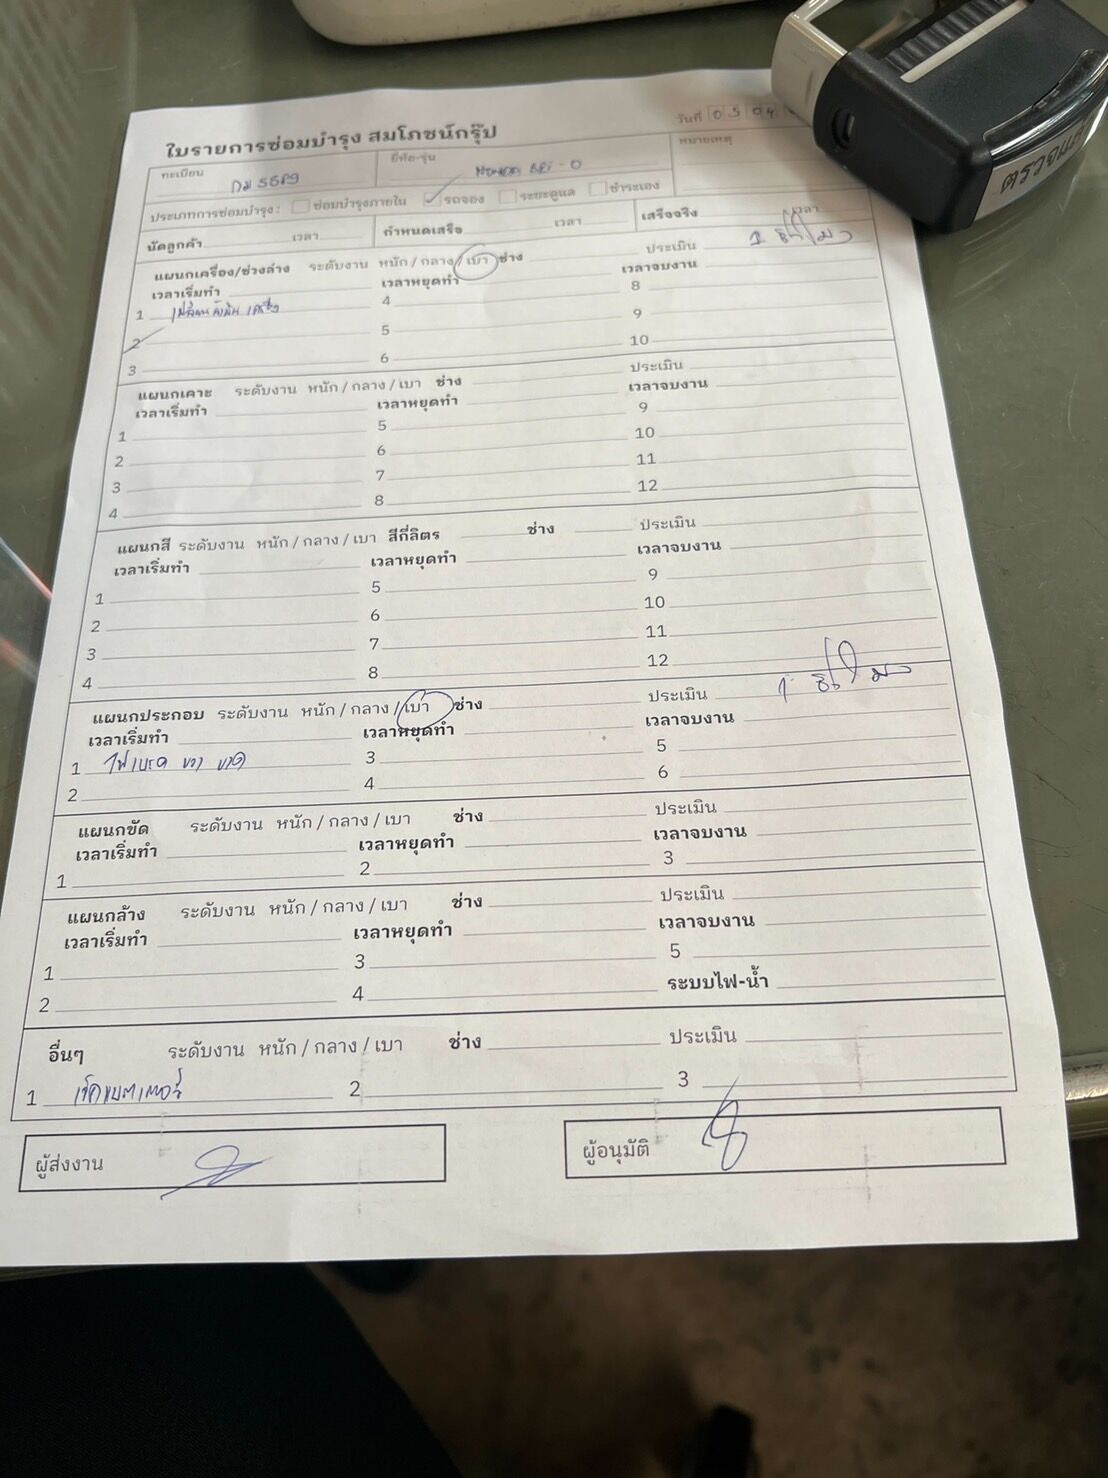 ใบรายการซ่อมบำรุง สมโภชน์กรุ๊ป
วันที่ 0 5 0 4
ทะเบียน กม 5689 ยี่ห้อ-รุ่น HONDA BRi-O หมายเหตุ
ประเภทการซ่อมบำรุง : ซ่อมบำรุงภายใน รถจอง ระยะดูแล ชำระเอง
นัดลูกค้า เวลา กำหนดเสร็จ เวลา เสร็จจริง เวลา
แผนกเครื่อง/ช่วงล่าง ระดับงาน หนัก / กลาง / เบา ช่าง ประเมิน 1 ชั่วโมง
เวลาเริ่มทำ เวลาหยุดทำ เวลาจบงาน
1 เปลี่ยนน้ำมันเครื่อง 4 8
2 5 9
3 6 10
แผนกเคาะ ระดับงาน หนัก / กลาง / เบา ช่าง ประเมิน
เวลาเริ่มทำ เวลาหยุดทำ เวลาจบงาน
1 5 9
2 6 10
3 7 11
4 8 12
แผนกสี ระดับงาน หนัก / กลาง / เบา สีกี่ลิตร ช่าง ประเมิน
เวลาเริ่มทำ เวลาหยุดทำ เวลาจบงาน
1 5 9
2 6 10
3 7 11
4 8 12
แผนกประกอบ ระดับงาน หนัก / กลาง / เบา ช่าง ประเมิน 1 ชั่วโมง
เวลาเริ่มทำ เวลาหยุดทำ เวลาจบงาน
1 ไฟเบรค ขวา ขาด 3 5
2 4 6
แผนกขัด ระดับงาน หนัก / กลาง / เบา ช่าง ประเมิน
เวลาเริ่มทำ เวลาหยุดทำ เวลาจบงาน
1 2 3
แผนกล้าง ระดับงาน หนัก / กลาง / เบา ช่าง ประเมิน
เวลาเริ่มทำ เวลาหยุดทำ เวลาจบงาน
1 3 5
2 4 ระบบไฟ-น้ำ
อื่นๆ ระดับงาน หนัก / กลาง / เบา ช่าง ประเมิน
1 เช็คแบตเตอร์ 2 3
ผู้ส่งงาน ผู้อนุมัติ